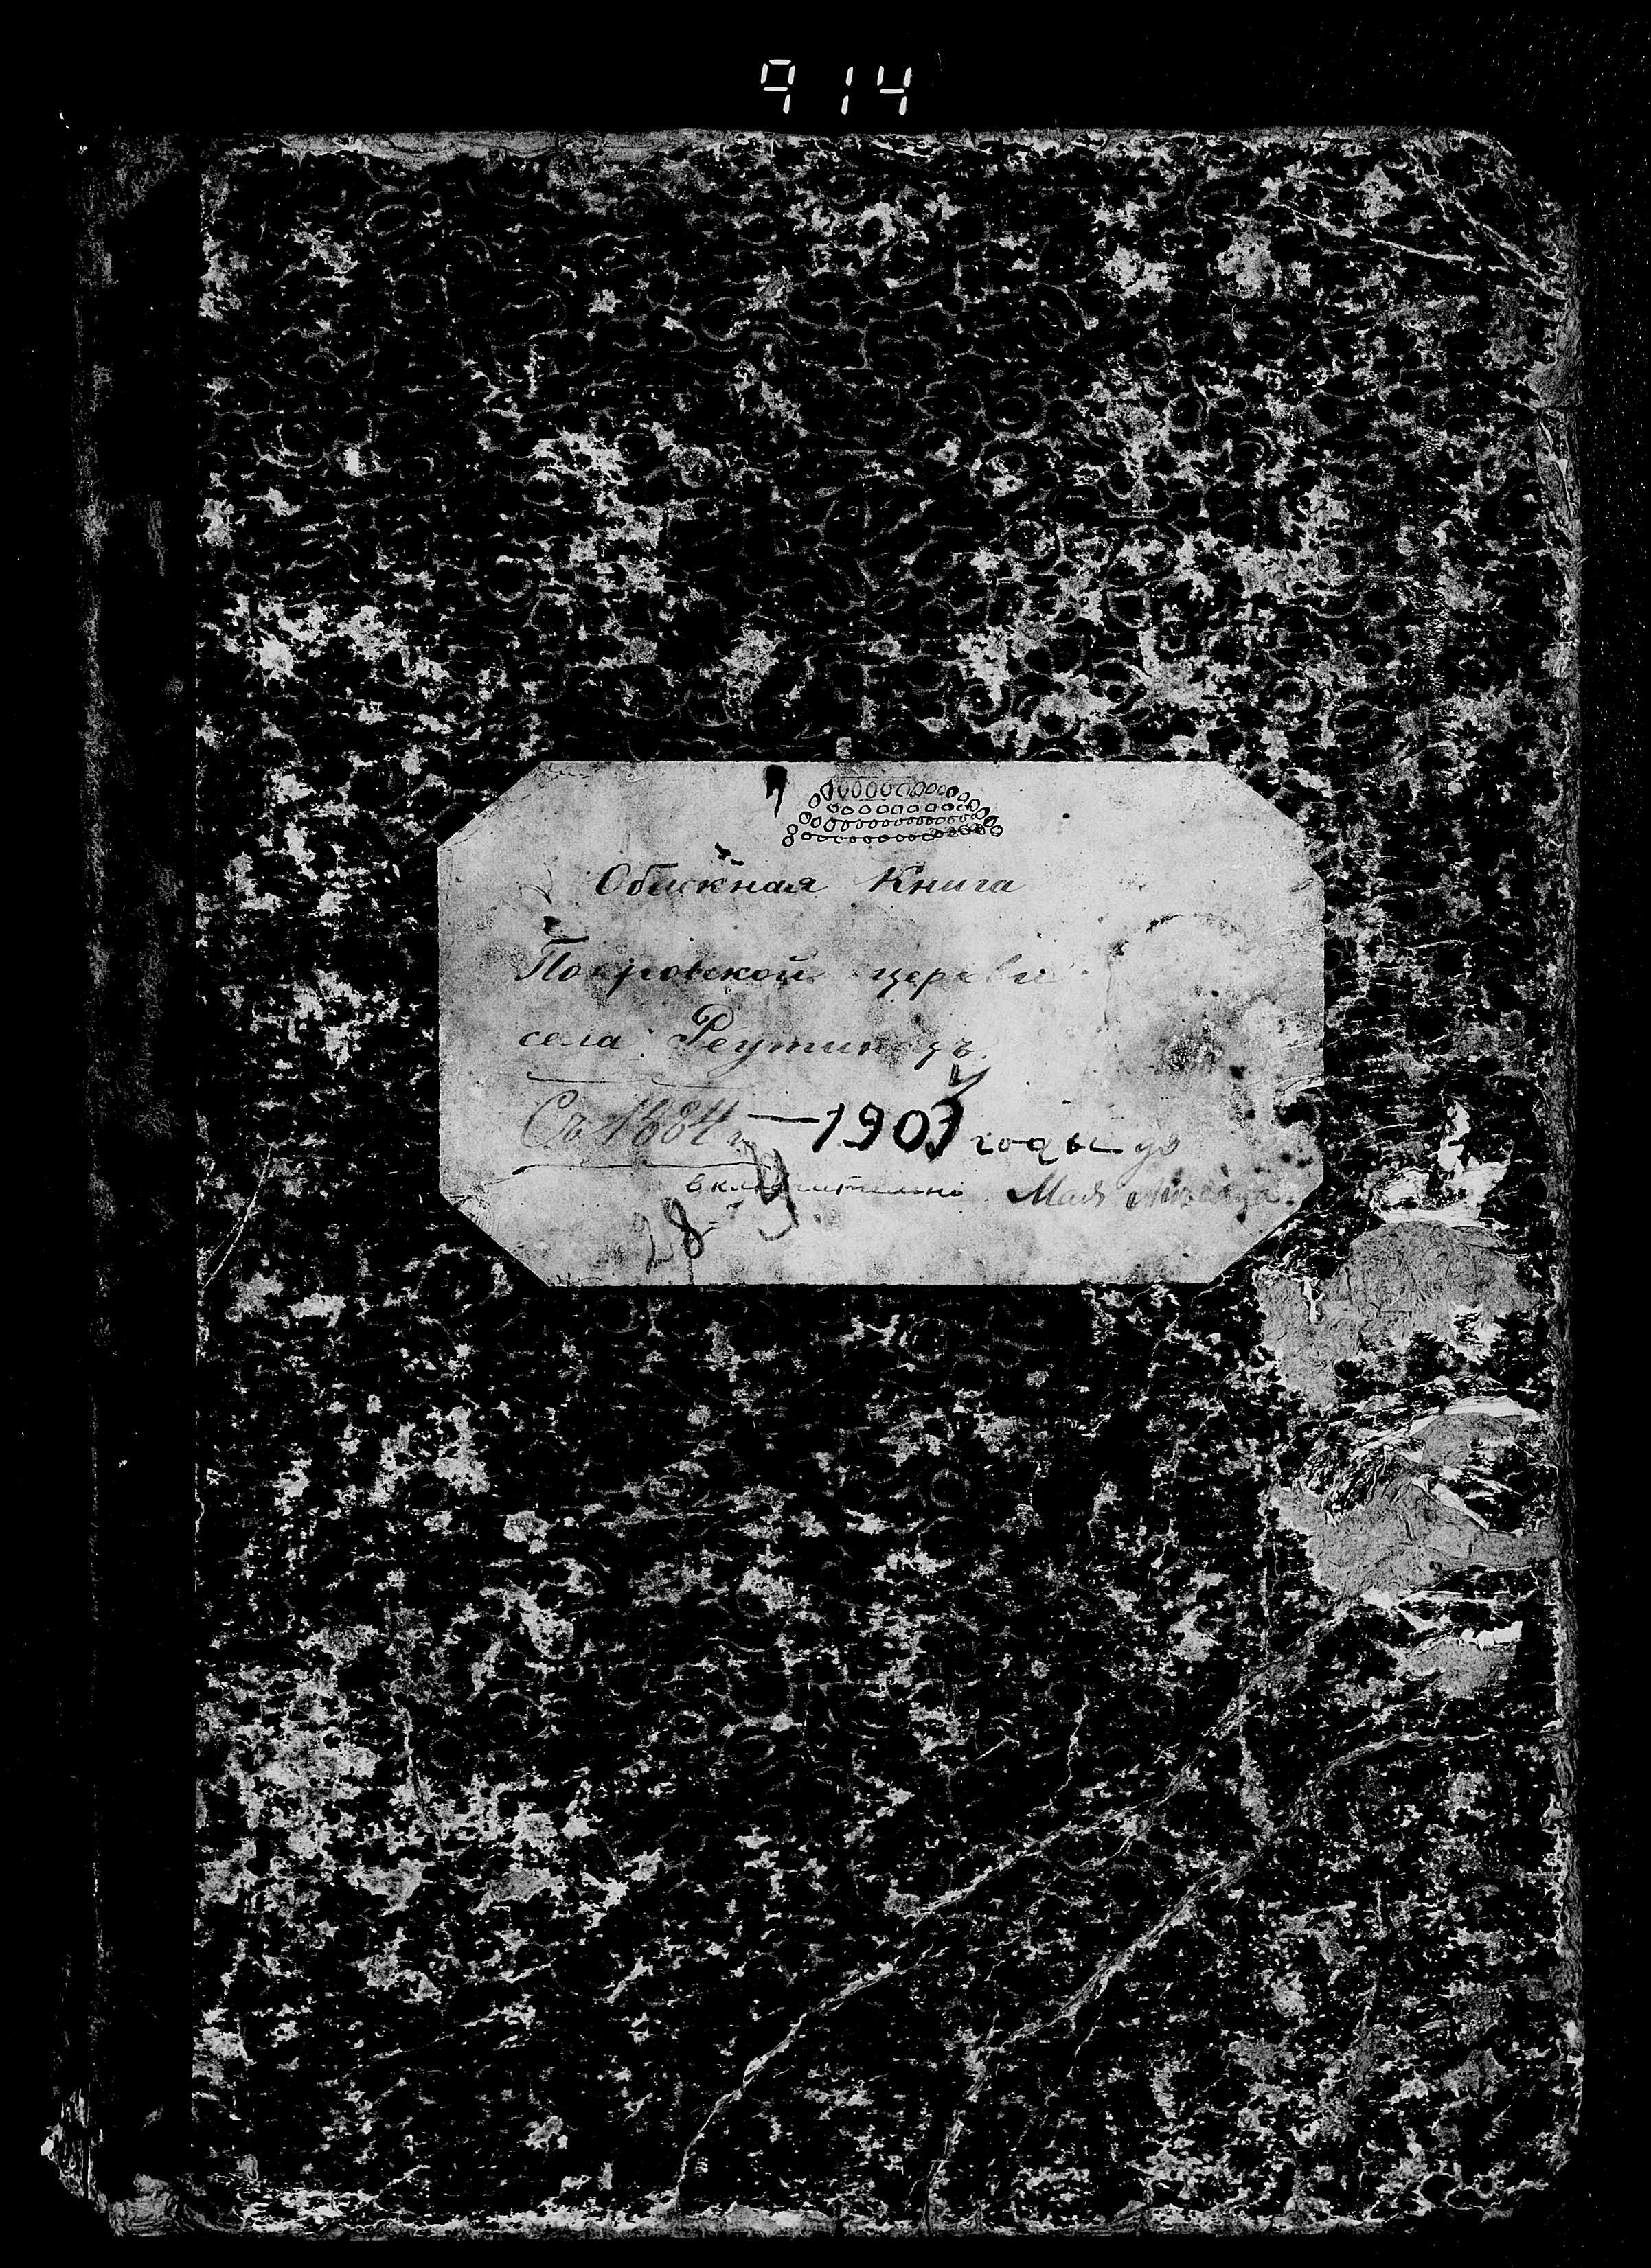 914
Обыскная Книга
Покровской церкви
села Реутинецъ
Съ 1884 г. — 1903 годы до
включительно. Мая месяца.
28